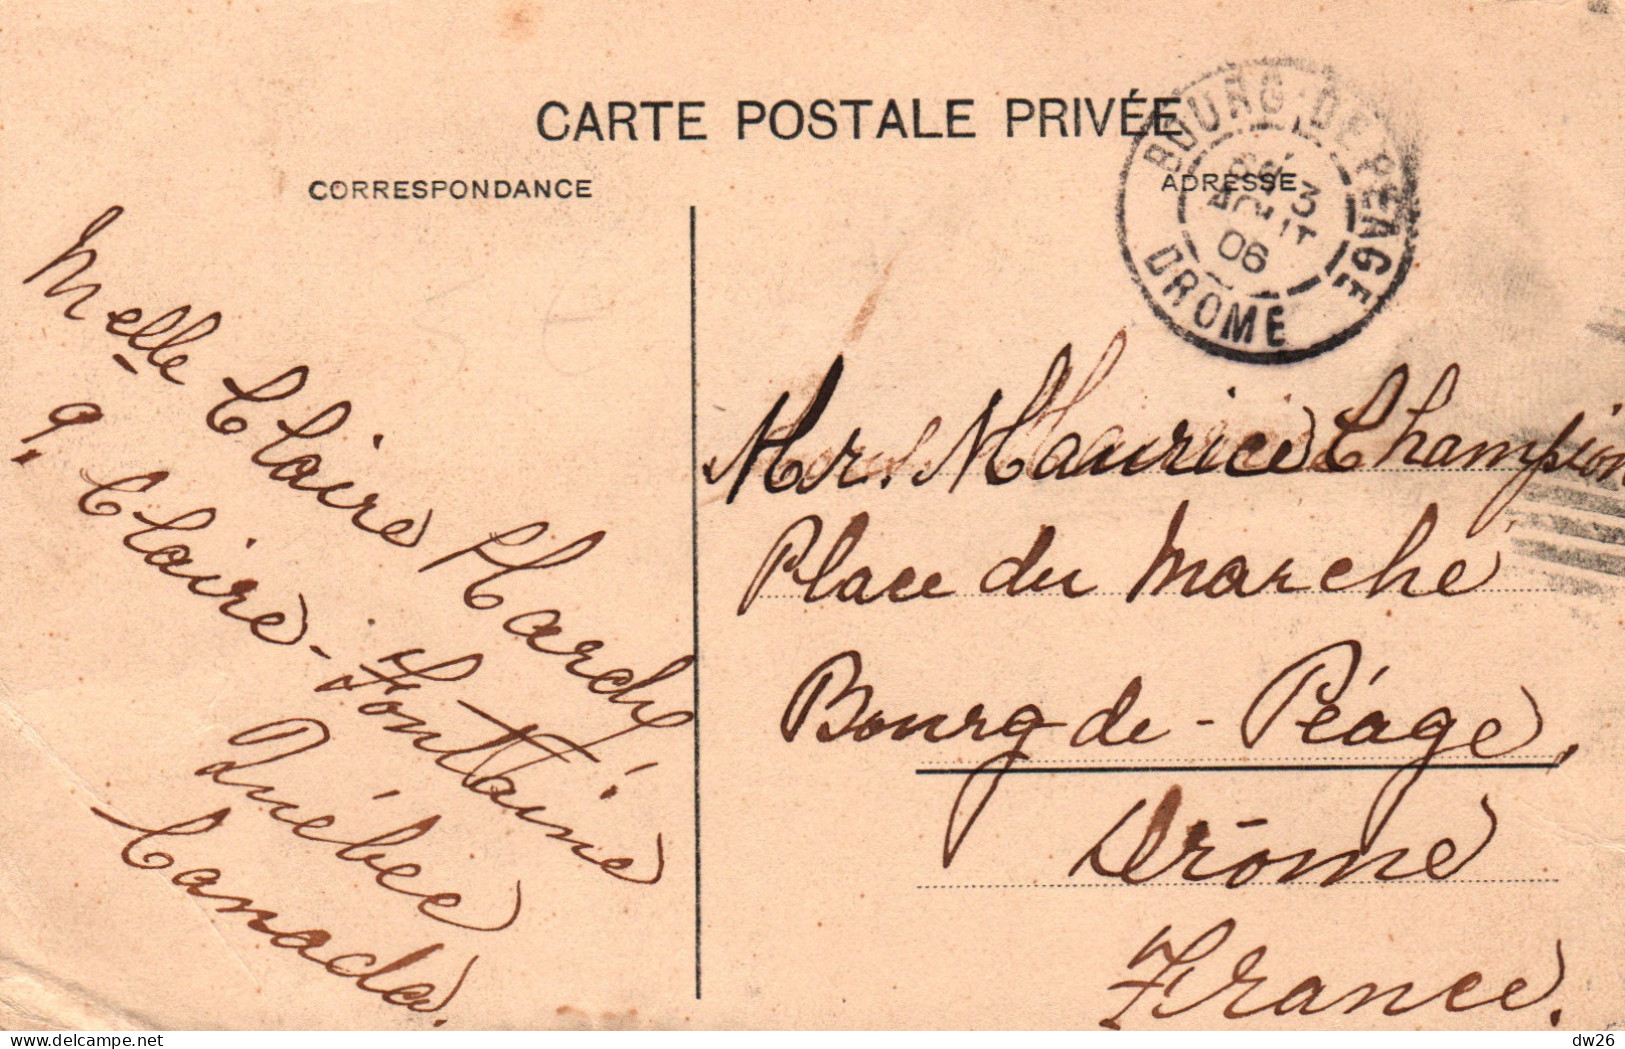 CARTE POSTALE PRIVÉE
CORRESPONDANCE
ADRESSE
BOURG-DE-PEAGE
3
AOUT
06
DROME
Melle Claire Hardy
9. Claire-Fontaine
Québec
Canada.
Mr. Maurice Champion
Place du Marché
Bourg de-Péage,
Drôme
France.
dw26
delcampe.net